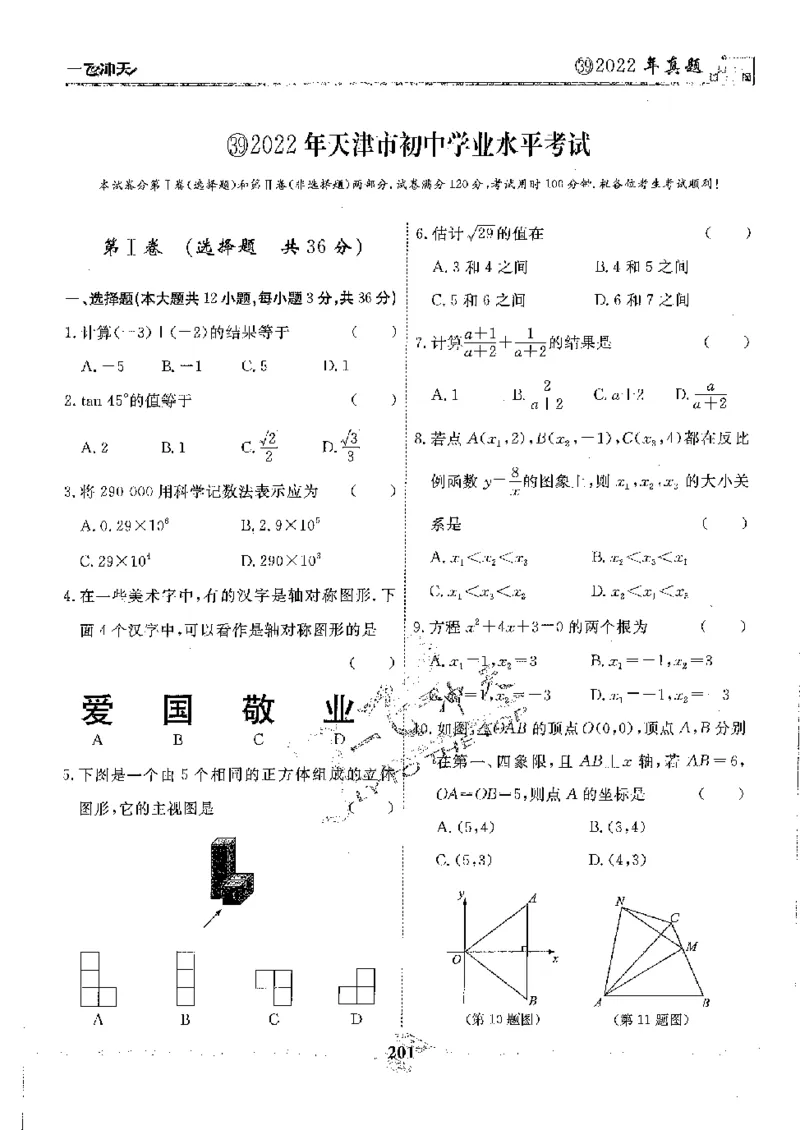 一飞冲天
㊴2022 年真题
㊴2022 年天津市初中学业水平考试
本试卷分第Ⅰ卷(选择题)和第Ⅱ卷(非选择题)两部分.试卷满分 120 分,考试用时 100 分钟.祝各位考生考试顺利!
第Ⅰ卷 (选择题 共 36 分)
一、选择题(本大题共 12 小题,每小题 3 分,共 36 分)
1.计算(-3)+(-2)的结果等于 ( )
A.-5 B.-1 C.5 D.1
2.tan 45°的值等于 ( )
A.2 B.1 C.√2/2 D.√3/3
3.将 290 000 用科学记数法表示应为 ( )
A.0.29×10⁶ B.2.9×10⁵
C.29×10⁴ D.290×10³
4.在一些美术字中,有的汉字是轴对称图形.下
面 4 个汉字中,可以看作是轴对称图形的是
( )
爱 国 敬 业
A B C D
5.下图是一个由 5 个相同的正方体组成的立体
图形,它的主视图是 ( )
A B C D
6.估计√29的值在 ( )
A.3 和 4 之间 B.4 和 5 之间
C.5 和 6 之间 D.6 和 7 之间
7.计算(a+1)/(a+2)+1/(a+2)的结果是 ( )
A.1 B.2/(a+2) C.a+2 D.a/(a+2)
8.若点 A(x₁,2),B(x₂,-1),C(x₃,4)都在反比
例函数 y=8/x的图象上,则 x₁,x₂,x₃ 的大小关
系是 ( )
A.x₁<x₂<x₃ B.x₂<x₃<x₁
C.x₁<x₃<x₂ D.x₂<x₁<x₃
9.方程 x²+4x+3=0 的两个根为 ( )
A.x₁=1,x₂=3 B.x₁=-1,x₂=3
C.x₁=1,x₂=-3 D.x₁=-1,x₂=-3
10.如图,△OAB 的顶点 O(0,0),顶点 A,B 分别
在第一、四象限,且 AB⊥x 轴,若 AB=6,
OA=OB=5,则点 A 的坐标是 ( )
A.(5,4) B.(3,4)
C.(5,3) D.(4,3)
y A O x B
N C M A B
(第 10 题图) (第 11 题图)
201